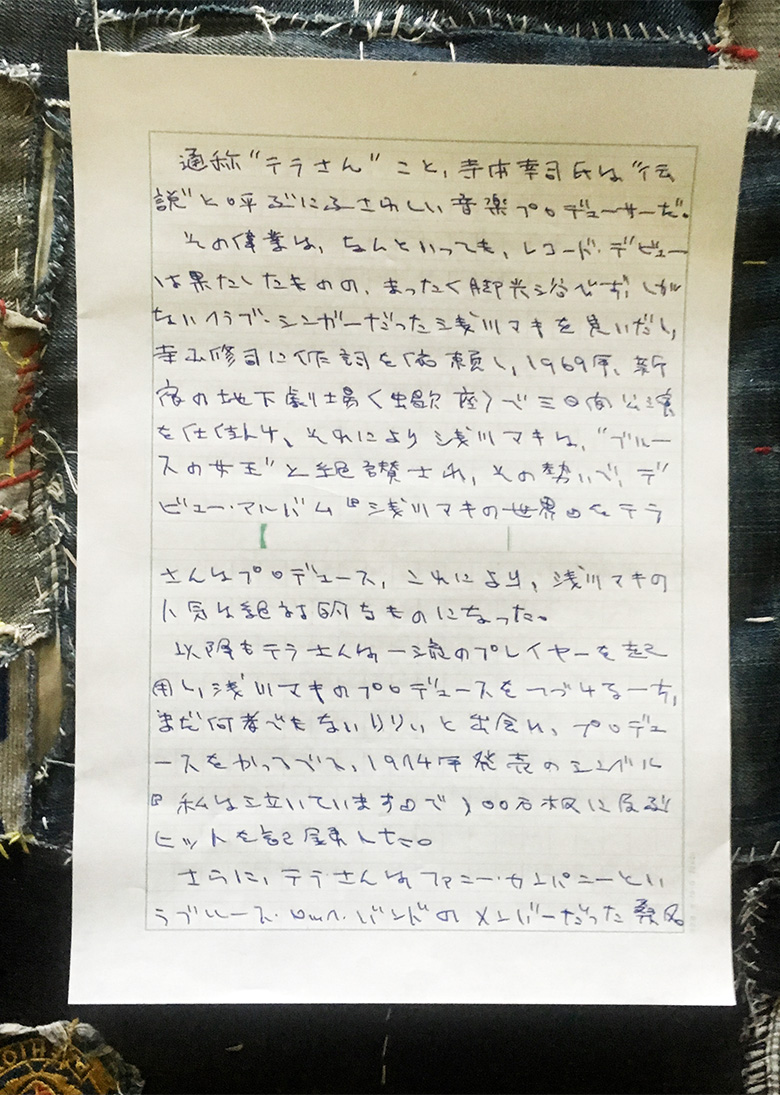 通称“テラさん”こと、寺本幸司氏は“伝
説”と呼ぶにふさわしい音楽プロデューサーだ。
その偉業は、なんといっても、レコード・デビュー
は果たしたものの、まったく脚光を浴びず、しが
ないクラブ・シンガーだった浅川マキを見いだし、
寺山修司に作詞を依頼し、1969年、新
宿の地下劇場〈蝎座〉で三日間公演
を仕掛け、それにより浅川マキは、“ブルー
スの女王”と絶賛され、その勢いで、デ
ビュー・アルバム『浅川マキの世界』をテラ
さんはプロデュース、これにより、浅川マキの
人気は絶対的なものになった。
以降もテラさんは一流のプレイヤーを起
用し、浅川マキのプロデュースをつづける一方、
まだ何者でもないりりィと出会い、プロデュ
ースをかってでて、1974年発売のシングル
『私は泣いています』で100万枚に及ぶ
ヒットを記録した。
さらに、テラさんはファニー・カンパニーとい
うブルース・ロック・バンドのメンバーだった桑名